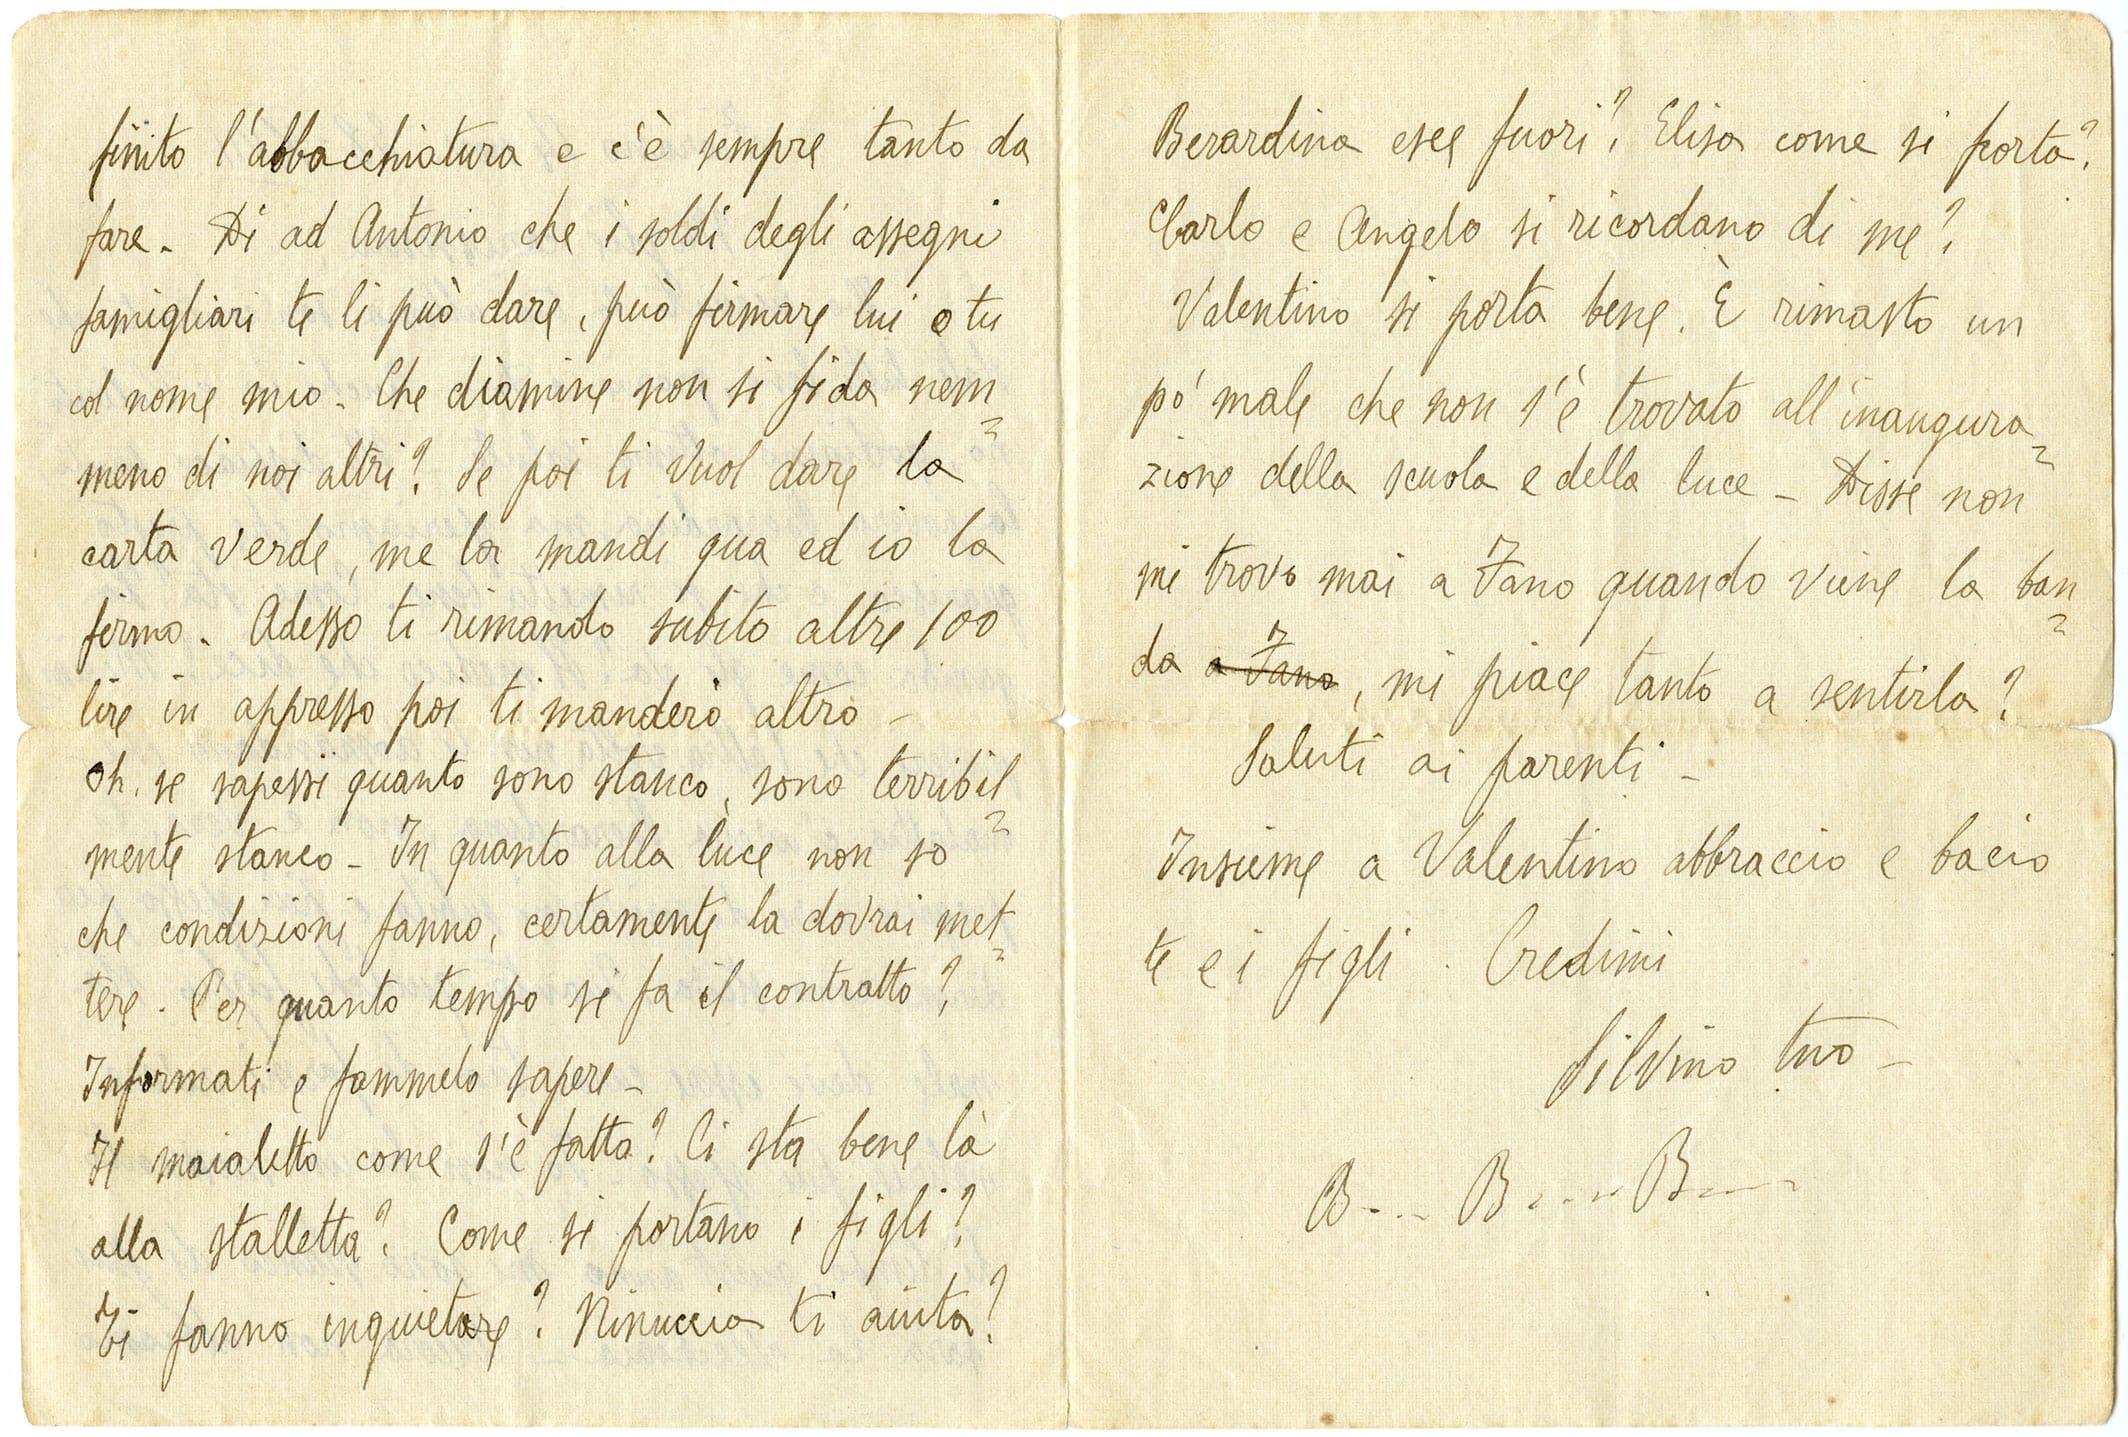 finito l'abbacchiatura e c'è sempre tanto da
fare. Di ad Antonio che i soldi degli assegni
famigliari te li può dare, può firmare lui o tu
col nome mio. Che diamine non si fida nem=
meno di noi altri? Se poi ti vuol dare la
carta verde, me la mandi qua ed io la
firmo. Adesso ti rimando subito altre 100
lire in appresso poi ti manderò altro -
Oh, se sapessi quanto sono stanco, sono terribil=
mente stanco - In quanto alla luce non so
che condizioni fanno, certamente la dovrai met=
tere. Per quanto tempo si fa il contratto?
Informati e fammelo sapere -
Il maialetto come s'è fatto? Ci sta bene là
alla stalletta? Come si portano i figli?
Ti fanno inquietare? Ninuccia ti aiuta?
Berardina esce fuori? Elisa come si porta?
Carlo e Angelo si ricordano di me?
Valentino si porta bene. È rimasto un
pò male che non s'è trovato all'inaugura=
zione della scuola e della luce - Disse non
mi trovo mai a Fano quando viene la ban=
da a Fano, mi piace tanto a sentirla?
Saluti ai parenti -
Insieme a Valentino abbraccio e bacio
te e i figli. Credimi
Silvino tuo -
B.... B..... B.....